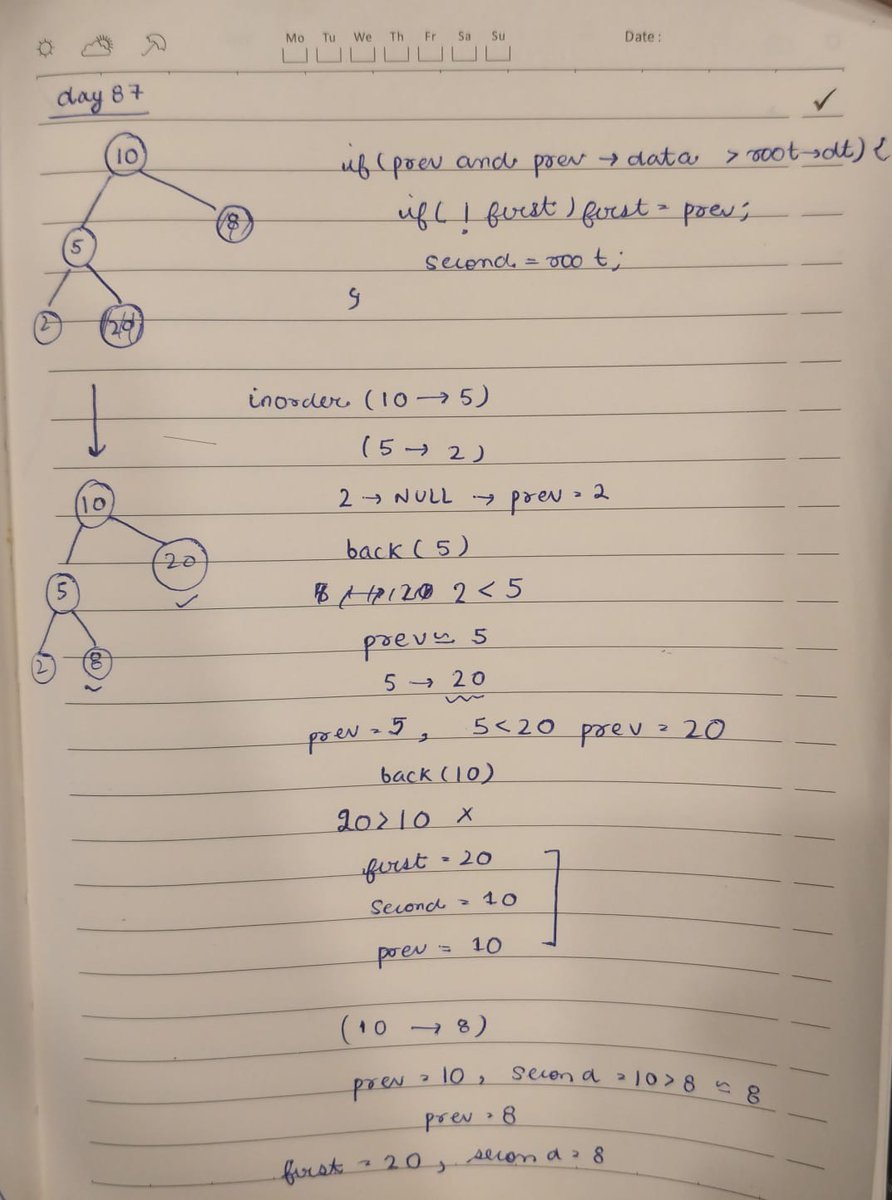 Mo Tu We Th Fr Sa Su Date :
day 87
10
8
5
2
20
if (prev and prev → data > root→dt) {
if ( ! first ) first = prev;
second = root;
}
inorder (10 → 5)
(5 → 2)
2 → NULL → prev = 2
back (5)
2 < 5
prev = 5
5 → 20
prev = 5, 5 < 20 prev = 20
back (10)
20 > 10 ×
first = 20
second = 10
prev = 10
10
20
5
2
8
(10 → 8)
prev = 10, second = 10 > 8 = 8
prev = 8
first = 20, second = 8